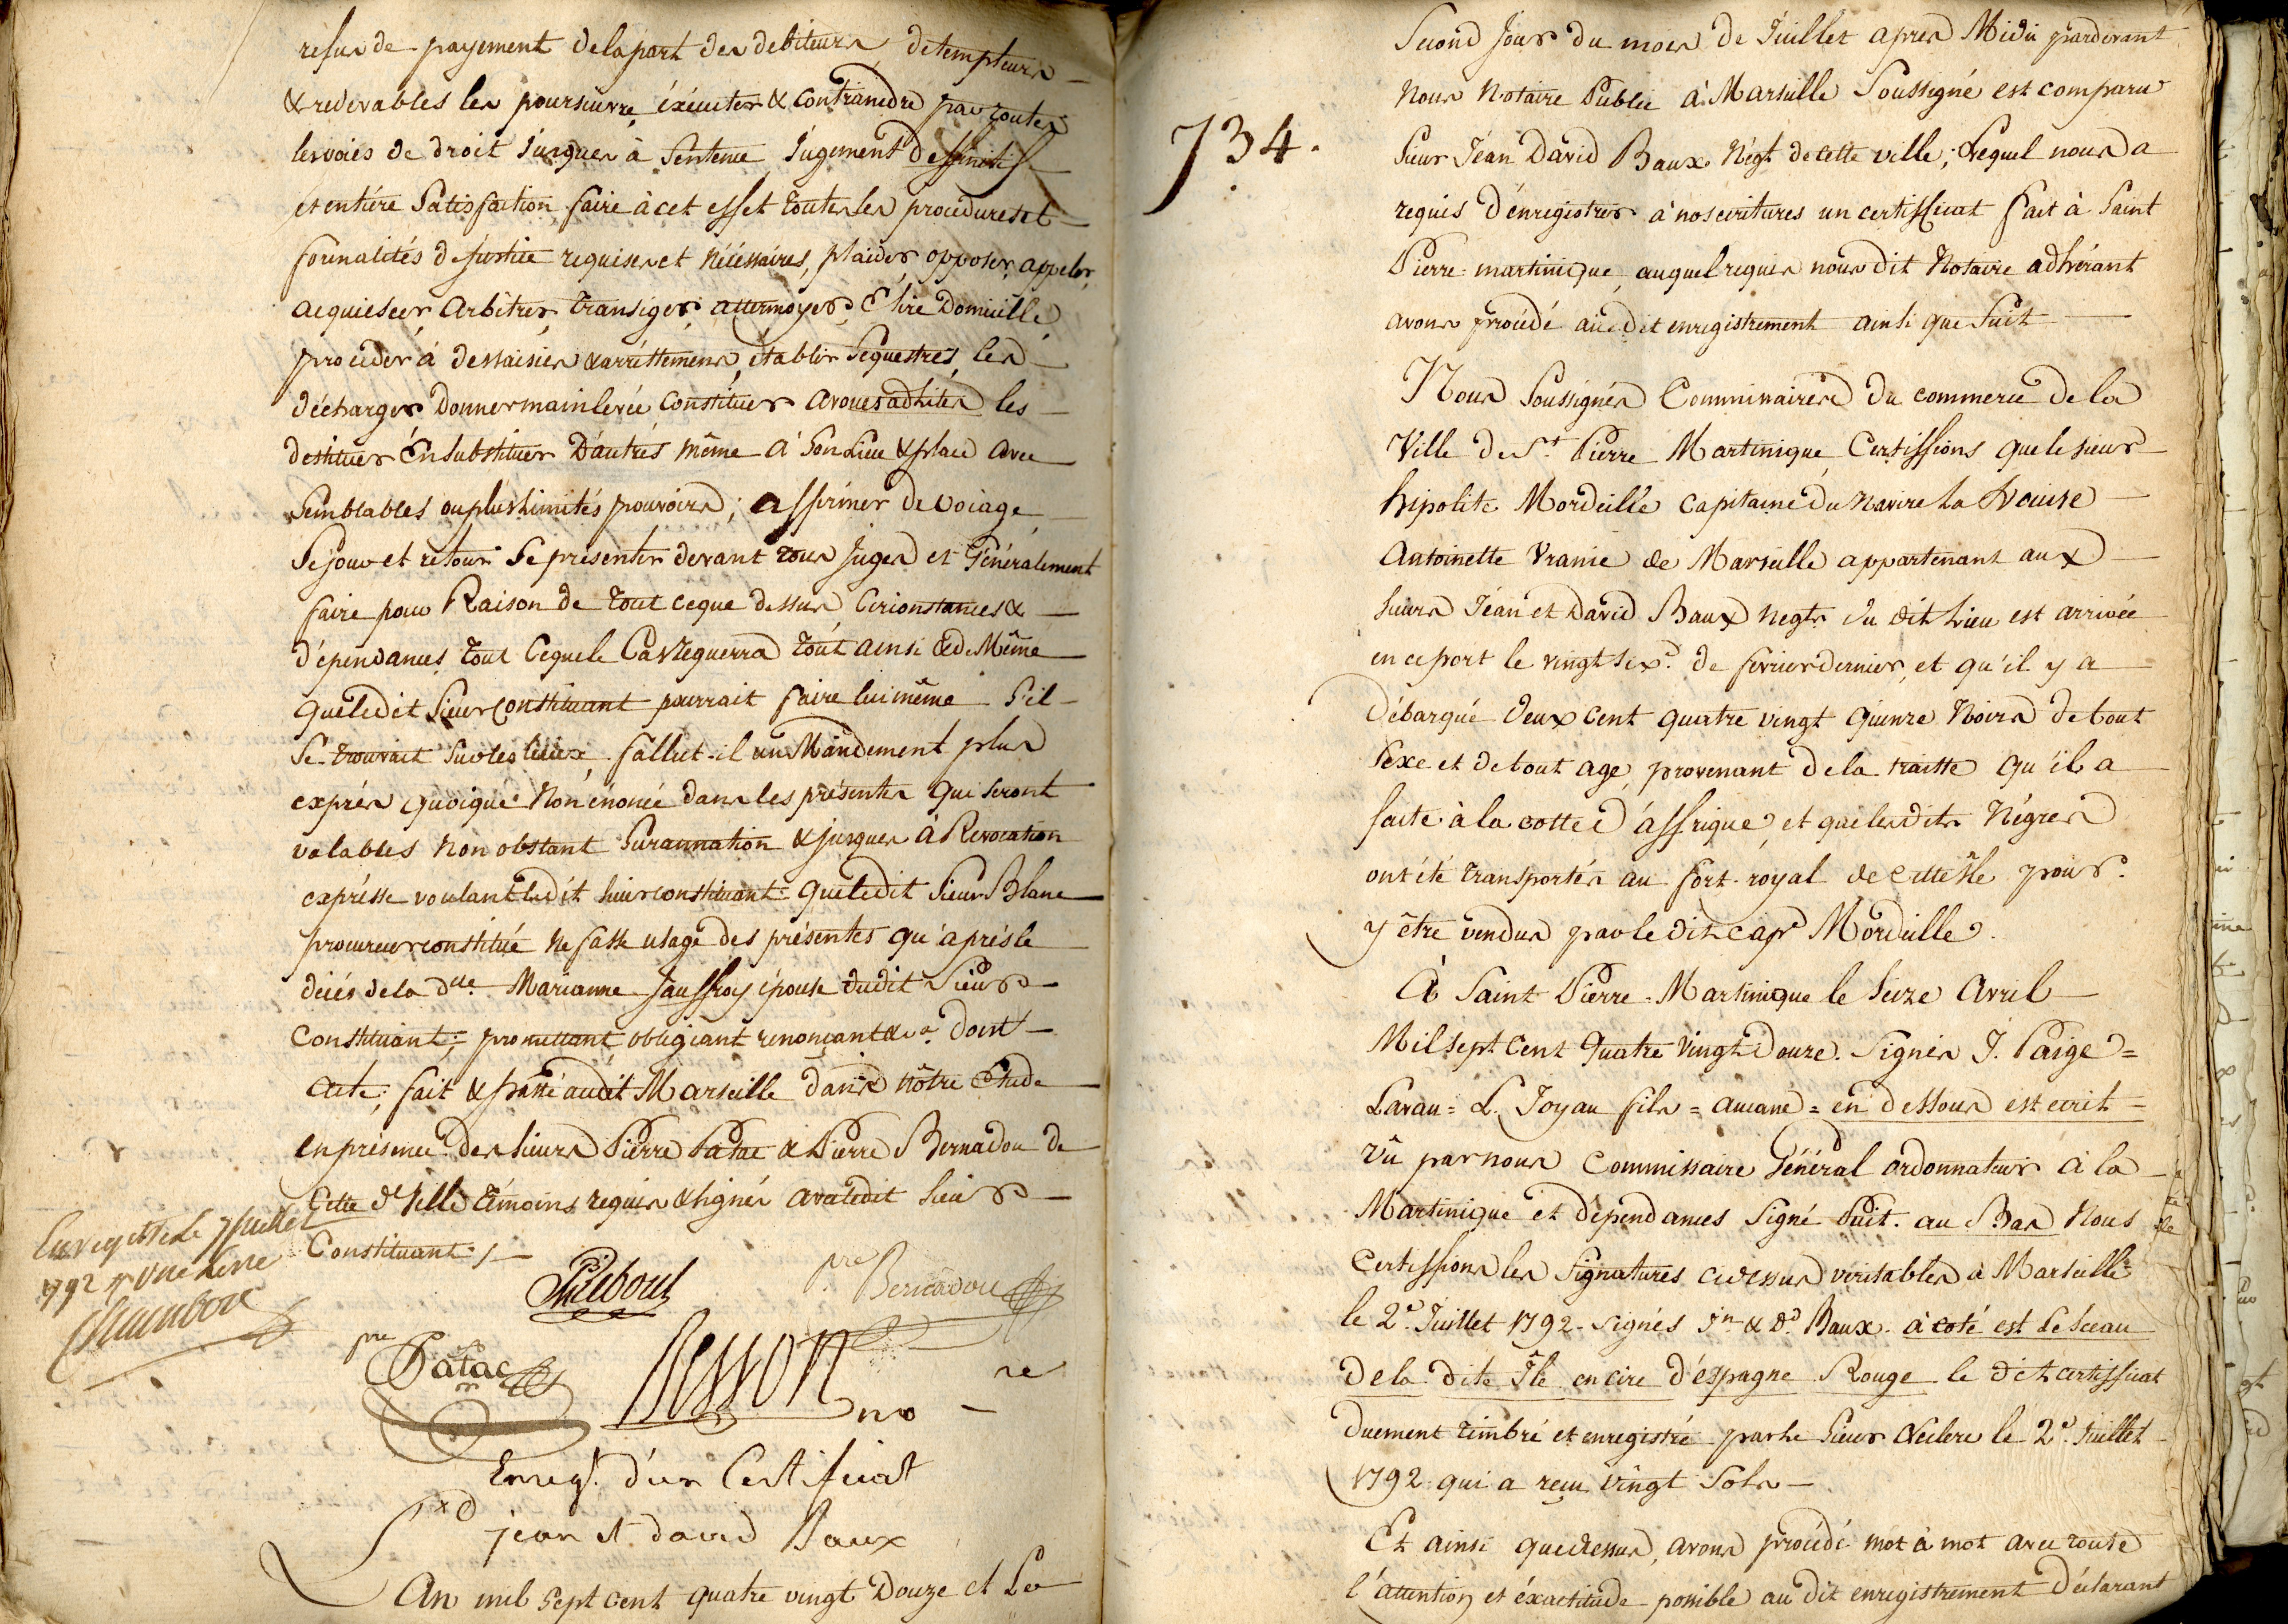 refus de payement dela part des debiteurs, detempteurs
& redevables les poursuivre, éxécuter & contraindre par toutes
les voies de droit Jusques à Sentence, Jugement deffinitif
et entiére Satisfaction, faire à cet effet toutes les procédures et
formalités de justice requises et nécéssaires, plaider, opposer, appeler,
acquiescer, arbitrer, transiger, attermoyer, Elire Domicille
procéder à dessaisies & arréttemens, établir Sequestres, les
décharger Donner mainlevée Constituer avoués ad lites les
destituer En Substituer D'autres même à Son Lieu & place avec
Semblables ou plus limités pouvoirs; affirmer de voiage
Sejour et retour Se présenter devant tous Juges et Généralement
faire pour Raison de tout ceque dessus Circonstances &
dépendances tout Ceque le Cas requerra tout ainsi & de Même
que ledit Sieur Constituant pourrait faire lui même S'il
Se trouvait Sur les lieux, fallut-il un Mandement plus
exprés quoique Non énoncé dans les présentes qui Seront
valables Non obstant Surannation & jusques à Révocation
expresse voulant ledit Sieur constituant que ledit Sieur Blanc
procureur constitué ne fasse usage des présentes qu'aprés le
décés de la dlle. Marianne Jauffroy épouse dudit Sieur
Constituant; promettant obligeant renonçant &ca. dont
Acte; fait & passé audit Marseille dans nôtre Etude
en présence des Sieurs Pierre Patac & Pierre Bernadou de
Cette Ville témoins requis & signés avec ledit Sieur
Constituant ;
Enregistré le 7 Juillet
1792 Une Livre
pre Bernadou
pre Patac
Sesson
no re
Enregt. d'un Certificat
jean et david Baux
An mil Sept cent quatre vingt Douze et Le
734.
Second Jour du mois de Juillet aprés Midi pardevant
Nous Notaire Public à Marseille Soussigné est comparu
Sieur Jéan David Baux Négt. de cette ville; Lequel nous a
requis d'énregistrer à nos écritures un certifficat fait à Saint
Pierre martinique, auquel requis nous dit Notaire adhérant
avons procédé audit enregistrement ainsi que Suit
Nous Soussignés Commissaires du commerce de la
Ville de St. Pierre Martinique Certiffions que le sieur
hipolite Mordeille Capitaine du Navire La Louise
Antoinette Uranie de Marseille appartenant aux
Sieurs Jéan et David Baux negts du dit Lieu est arrivée
en ce port le vingt six. de fevrier dernier, et qu'il y a
Débarqué deux cent quatre vingt quinze Noirs de tout
Sexe et de tout age, provenant dela traitte qu'il a
faite à la cotte d'affrique, et que lesdits Négres
ont été transportés au fort royal de cette Ile pour
y être vendus par le dit cape Mordeille.
À Saint Pierre Martinique le Seize Avril
Mil sept Cent Quatre Vingt Douze. Signés J. Paige =
Lavau = L. Joyau fils = aucane = en dessous est ecrit =
Vû par nous Commissaire Général ordonnateur à la
Martinique et dépendances Signé Petit. au Bas Nous
Certiffions les Signatures ci dessus véritables à Marseille
le 2e. Juillet 1792. Signés Jn. & Dd. Baux. à coté est Le Sceau
de la dite Ile en cire d'éspagne Rouge le dit certifficat
duement timbré et enregistré par le Sieur Leclerc le 2e. Juillet
1792. qui a reçu vingt Sols
Et ainsi que dessus, avons procédé mot à mot avec toute
l'attention et éxactitude possible au dit enregistrement Déclarant